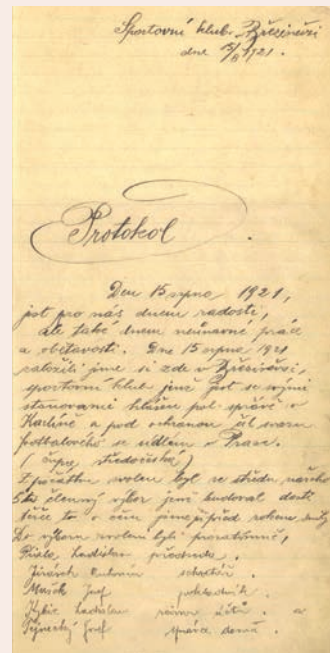 Sportovní klub v Březiněvsi
dne 15/8 1921.
Protokol.
Den 15 srpna 1921,
jest pro nás dnem radosti,
ale také dnem neúnavné práce
a obětavosti. Dne 15 srpna 1921
založili jsme si zde v Březiněvsi,
sportovní klub jenž jest se svými
stanovami hlášen pol. správě v
Karlíně a pod ochranou čsl svazu
footbalového se sídlem v Praze.
( župa středočeská )
Z počátku zvolen byl ze středu našeho
5ti členný výbor jenž budoval dosti
těžce to o čem jsme již před rokem snili
Do výboru zvoleni byli prozatimně,
Ladislav předseda.
Jirásek Antonín
Mašek Josef pokladník.
Ladislav revisor účtů. a
Josef správce domá.